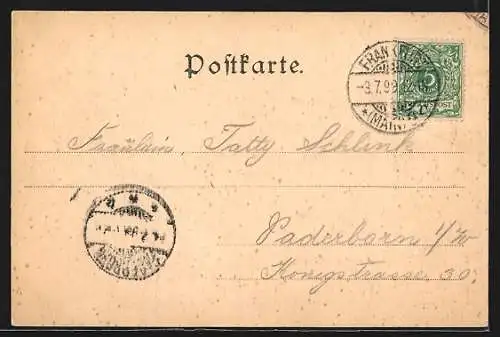 Postkarte.
FRANKFURT
-3.7.99
*(MAIN)
Fräulein, Tatty Schlink
Paderborn i/W
Königstrasse 30.
PADERBORN